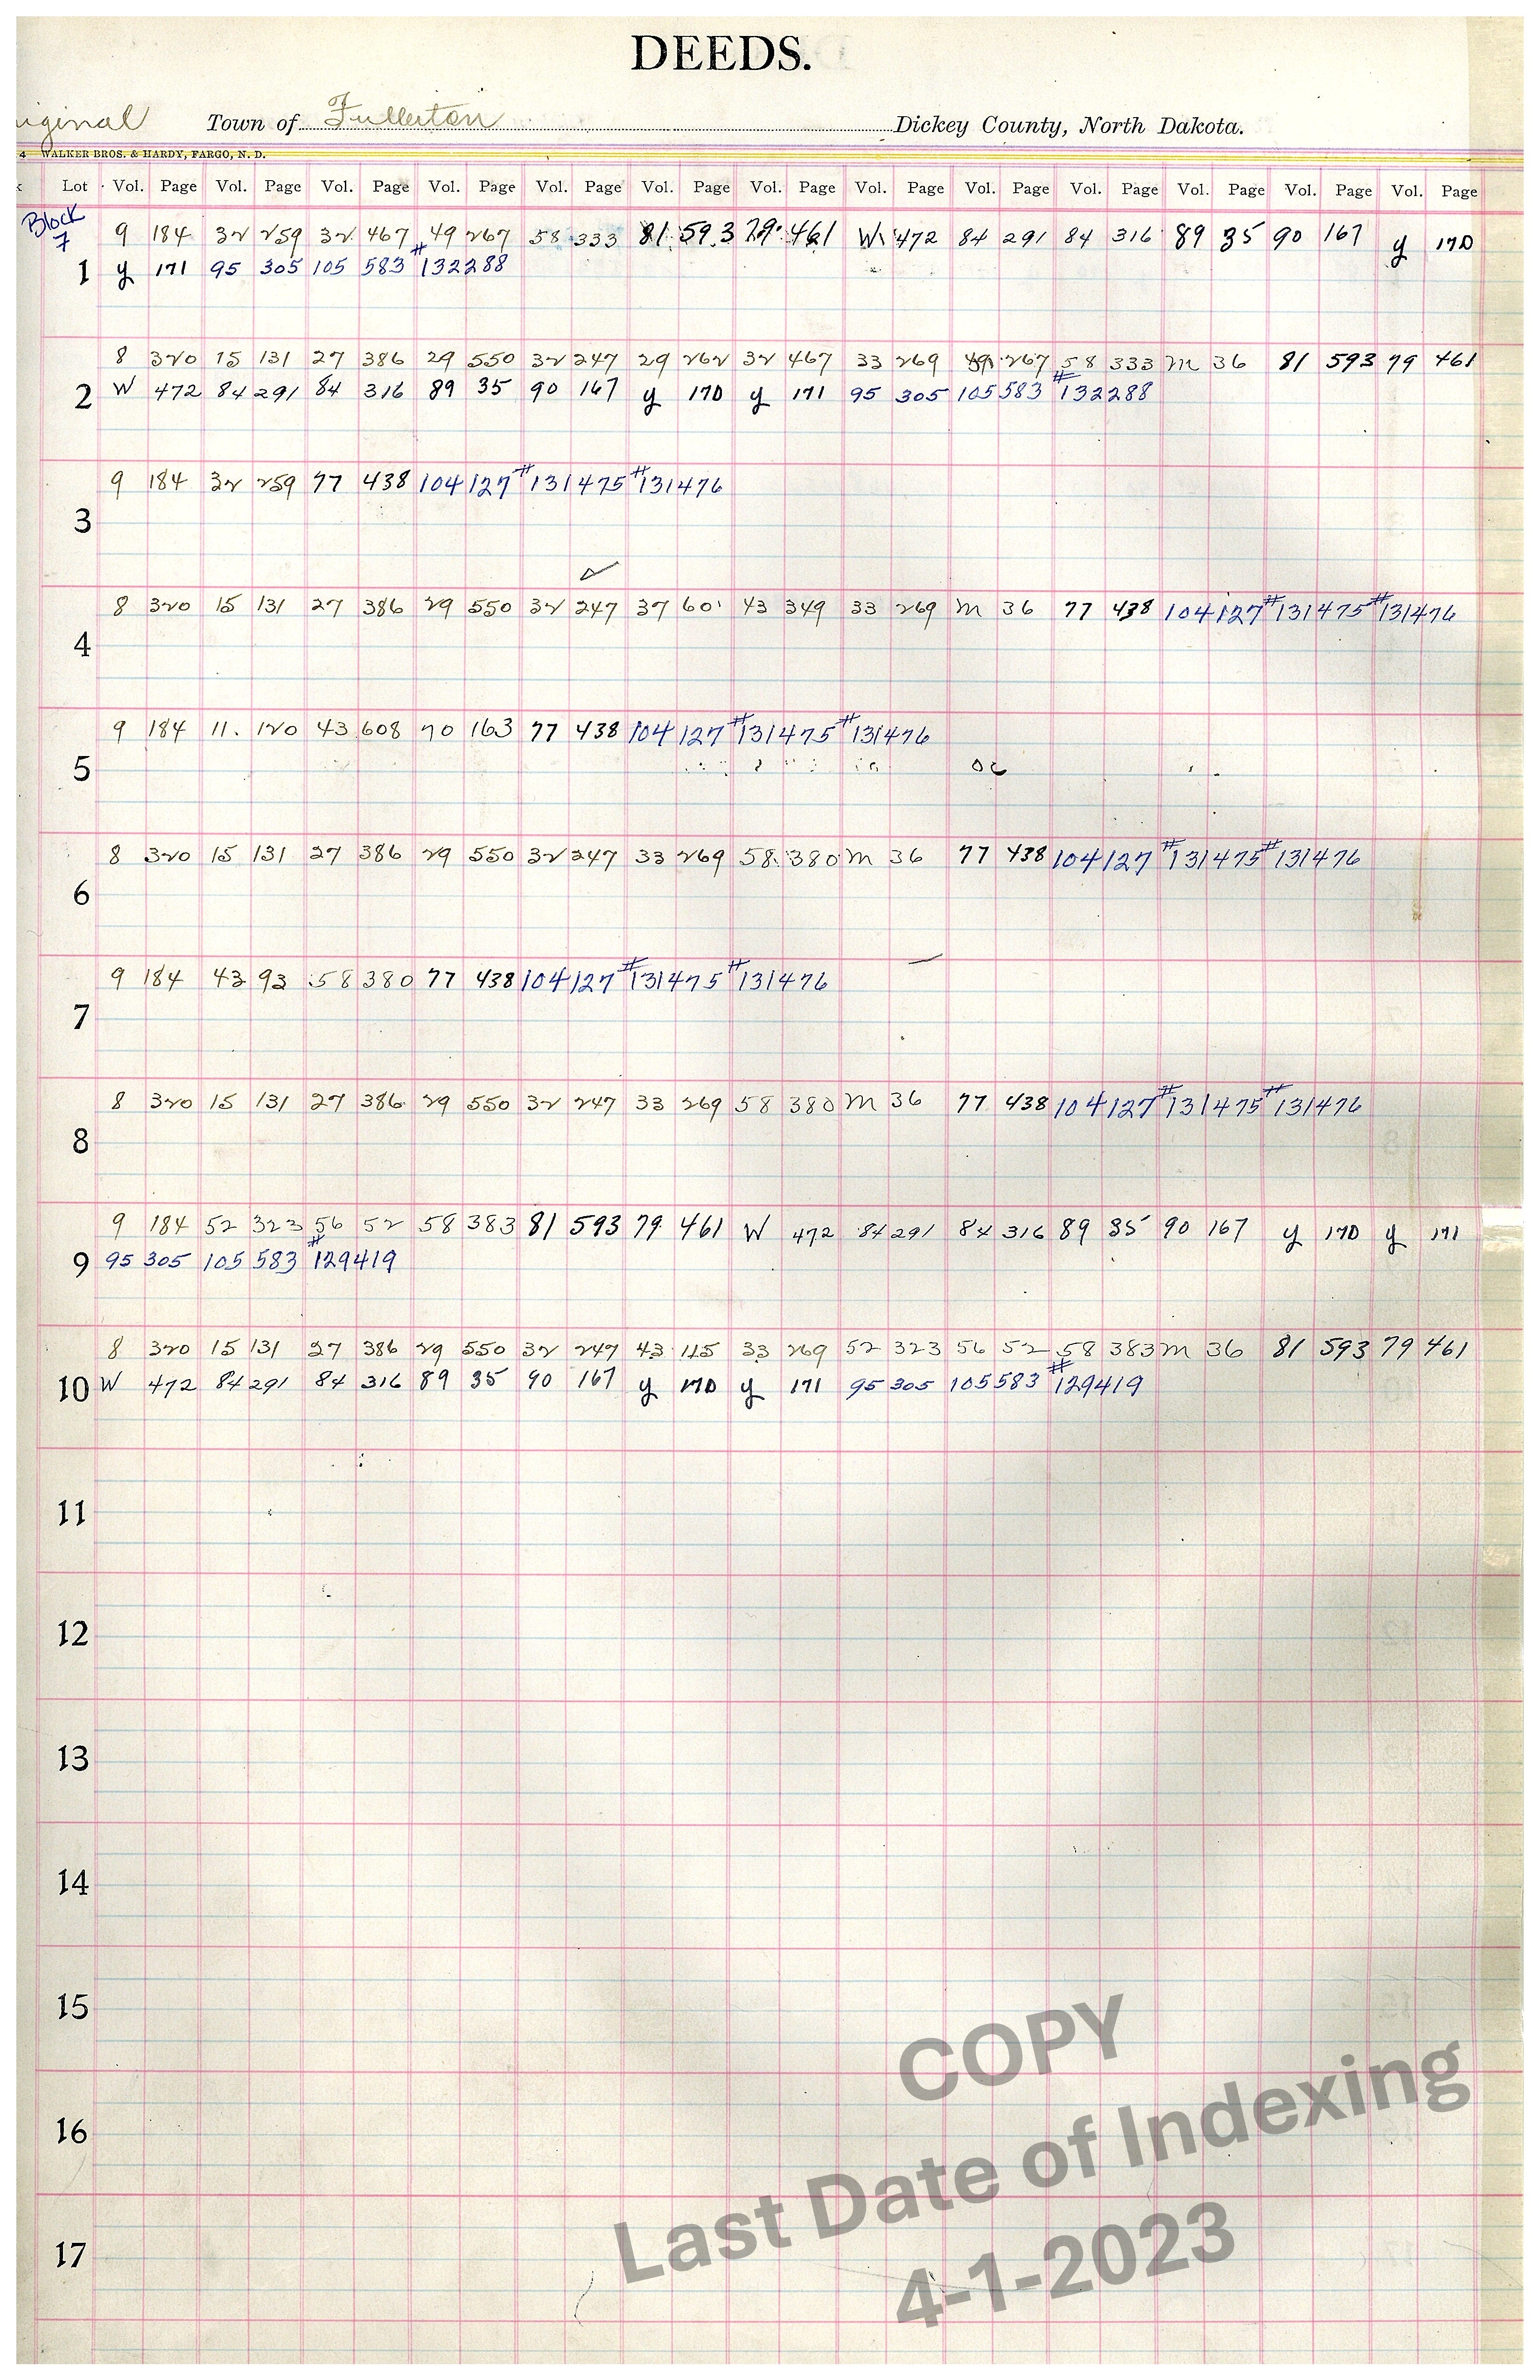 DEEDS.
iginal Town of Fullerton Dickey County, North Dakota.
4 WALKER BROS. & HARDY, FARGO, N. D.
Lot Vol. Page Vol. Page Vol. Page Vol. Page Vol. Page Vol. Page Vol. Page Vol. Page Vol. Page Vol. Page Vol. Page Vol. Page Vol. Page
Block
7
9 184 32 259 32 467 49 267 58 333 81 593 79 461 W 472 84 291 84 316 89 35 90 167 y 170
1 y 171 95 305 105 583 #132288
8 320 15 131 27 386 29 550 32 247 29 262 32 467 33 269 49 267 58 333 M 36 81 593 79 461
2 W 472 84 291 84 316 89 35 90 167 y 170 y 171 95 305 105 583 #132288
9 184 32 259 77 438 104 127 #131475 #131476
3
8 320 15 131 27 386 29 550 32 247 37 601 43 349 33 269 M 36 77 438 104 127 #131475 #131476
4
9 184 11 120 43 608 70 163 77 438 104 127 #131475 #131476
5
8 320 15 131 27 386 29 550 32 247 33 269 58 380 M 36 77 438 104 127 #131475 #131476
6
9 184 43 93 58 380 77 438 104 127 #131475 #131476
7
8 320 15 131 27 386 29 550 32 247 33 269 58 380 M 36 77 438 104 127 #131475 #131476
8
9 184 52 323 56 52 58 383 81 593 79 461 W 472 84 291 84 316 89 35 90 167 y 170 y 171
9 95 305 105 583 #129419
8 320 15 131 27 386 29 550 32 247 43 115 33 269 52 323 56 52 58 383 M 36 81 593 79 461
10 W 472 84 291 84 316 89 35 90 167 y 170 y 171 95 305 105 583 #129419
11
12
13
14
15
16
17
COPY
Last Date of Indexing
4-1-2023